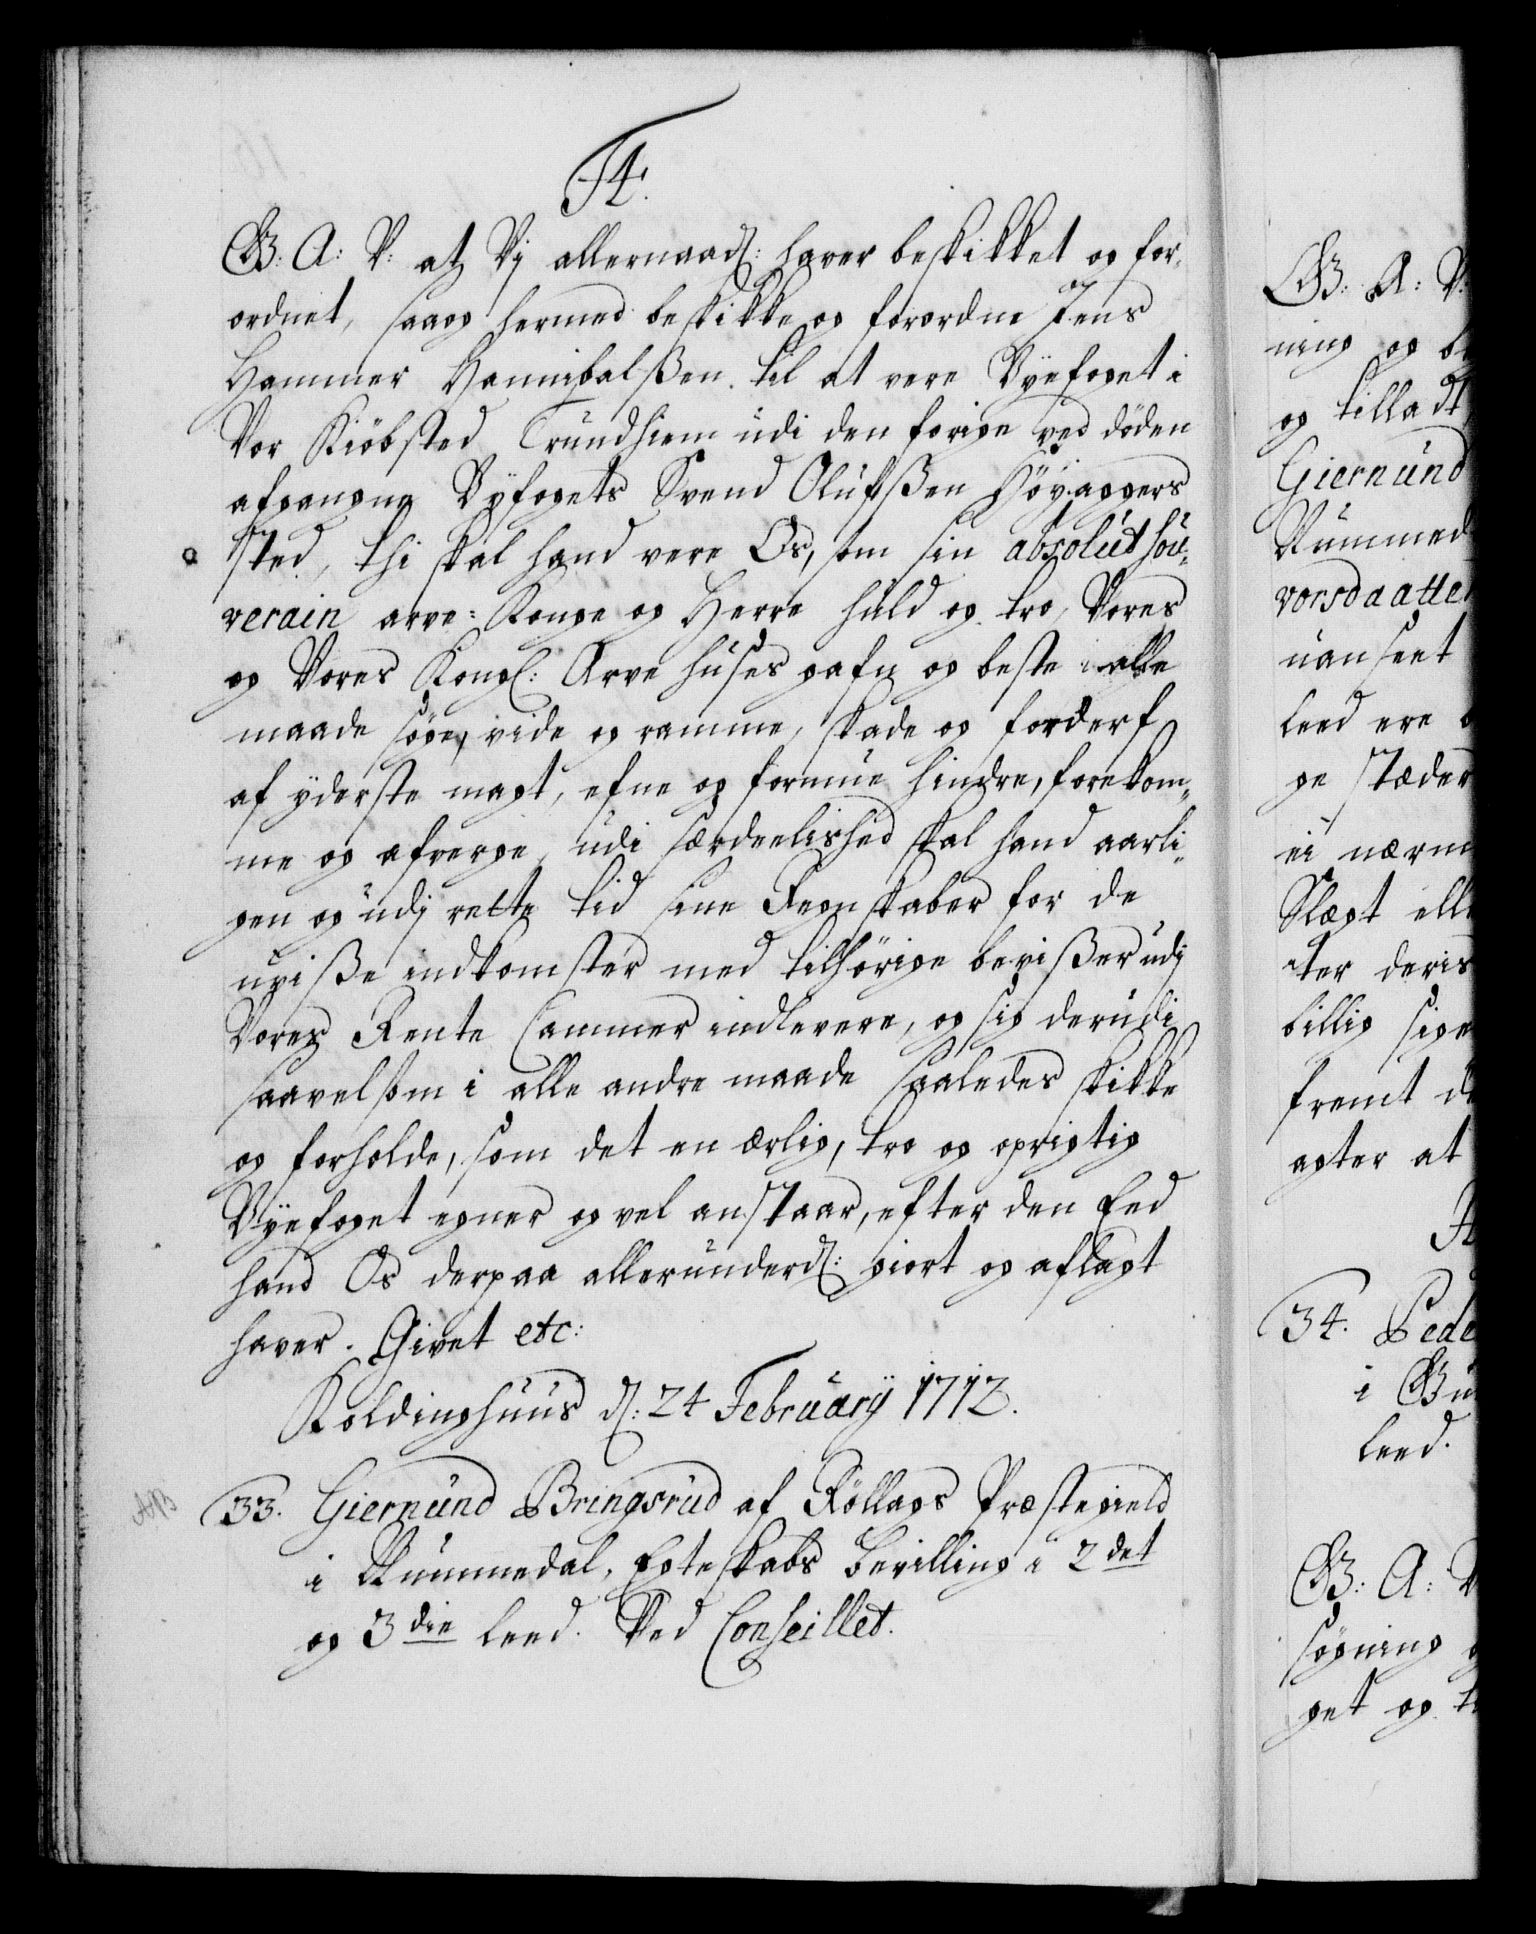 F4.
G: A: V: at Vj allernaadₛ: hafver beskikket og for-
ordnet, saaog hermed beskikke og forordne Jens
Hammer Hannibalsßen til at vere Byefoget i
Vor Kiöbsted Trundhiem udi den forige ved döden
afgangne Byfogets Svend Olufsßen Höyaggers
sted, thi skal hand vere Os, som sin absolut sou-
verain arve-Konge og Herre huld og tro, Vores
og Vores Kongl: Arve huses gafn og beste i alle
maade söge, vide og ramme, skade og forderf
af yderste magt, efne og formue hindre, forekom-
me og afverge, udi særdeelished skal hand aarli-
gen og udj rette tid sine Regnskaber for de
uviße indkomster med tilhörige bevißer udj
Vores Rente Cammer indlevere, og sig derudi
saavelsom i alle andre maade saaledes skikke
og forholde, som det en ærlig, tro og oprigtig
Byefoget egner og vel anstaar, efter den Eed
hand Os derpaa allerunderdₛ: giort og aflagt
haver. Givet etc:
Koldinghuus d: 24 Februarij 1712.
33. Giernund Bringsrud af Röllags Præstegield
i Nummedal, Egteskabs bevilling i 2det
og 3die leed. Ved Conseillet.
G: A: V:
ning og
og tilladt
Giernund
Nummed
vorsdaatte
uanseet
leed ere
ge stæder
ei nærm
Slægt ell
ter deris
billig sige
fremt d
agter at
34. Pede
i Gu
leed.
G: A: V
søgning
get og t